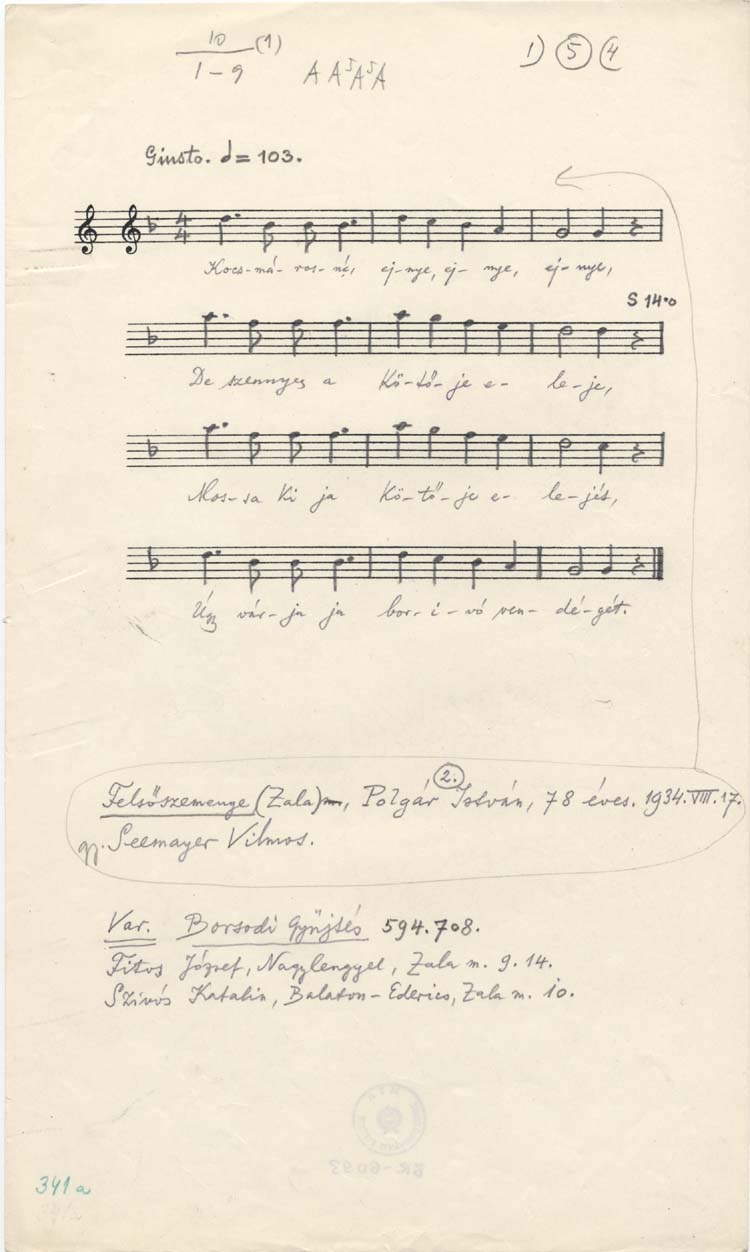 10 (1) 1) 5 (4
1-9 A A⁵A⁵A
Giusto. = 103.
4
4
Kocs-má-ros-né, ej-nye, ej-nye, ej-nye,
S 14.0
De szennyes a Kö-tő-je e-le-je,
Mos-sa ki ja Kö-tő-je e-le-jét,
Úgy vár-ja ja bor-i-vó ven-dé-gét.
2.
Felsőszemenye (Zala)m, Polgár István, 78 éves. 1934.VIII.17.
gy. Seemayer Vilmos.
Var. Borsodi Gyűjtés 594.708.
Fitos József, Nagylengyel, Zala m. 9.14.
Szívós Katalin, Balaton-Ederics, Zala m. 10.
BR-6093
341a